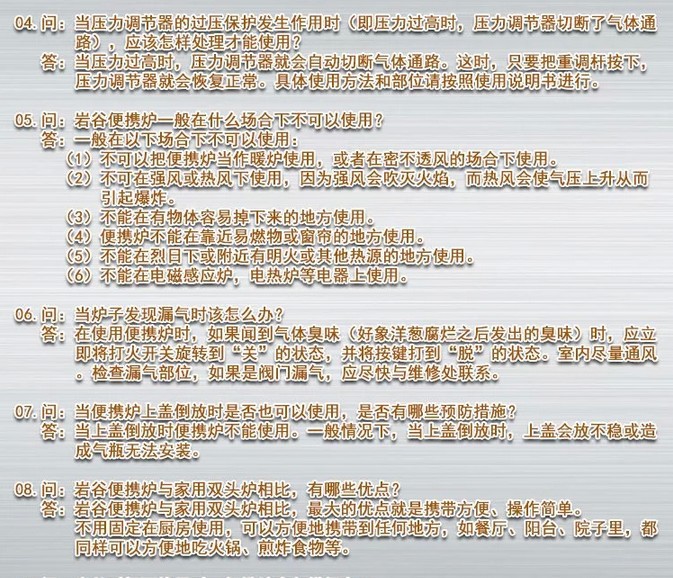 04.问：当压力调节器的过压保护发生作用时（即压力过高时，压力调节器切断了气体通
路），应该怎样处理才能使用？
答：当压力过高时，压力调节器就会自动切断气体通路。这时，只要把重调杆按下，
压力调节器就会恢复正常。具体使用方法和部位请按照使用说明书进行。
05.问：岩谷便携炉一般在什么场合下不可以使用？
答：一般在以下场合下不可以使用：
（1）不可以把便携炉当作暖炉使用，或者在密不透风的场合下使用。
（2）不可在强风或热风下使用，因为强风会吹灭火焰，而热风会使气压上升从而
引起爆炸。
（3）不能在有物体容易掉下来的地方使用。
（4）便携炉不能在靠近易燃物或窗帘的地方使用。
（5）不能在烈日下或附近有明火或其他热源的地方使用。
（6）不能在电磁感应炉，电热炉等电器上使用。
06.问：当炉子发现漏气时该怎么办？
答：在使用便携炉时，如果闻到气体臭味（好象洋葱腐烂之后发出的臭味）时，应立
即将打火开关旋转到“关”的状态，并将按键打到“脱”的状态。室内尽量通风
。检查漏气部位，如果是阀门漏气，应尽快与维修处联系。
07.问：当便携炉上盖倒放时是否也可以使用，是否有哪些预防措施？
答：当上盖倒放时便携炉不能使用。一般情况下，当上盖倒放时，上盖会放不稳或造
成气瓶无法安装。
08.问：岩谷便携炉与家用双头炉相比，有哪些优点？
答：岩谷便携炉与家用双头炉相比，最大的优点就是携带方便、操作简单。
不用固定在厨房使用，可以方便地携带到任何地方，如餐厅、阳台、院子里，都
同样可以方便地吃火锅、煎炸食物等。